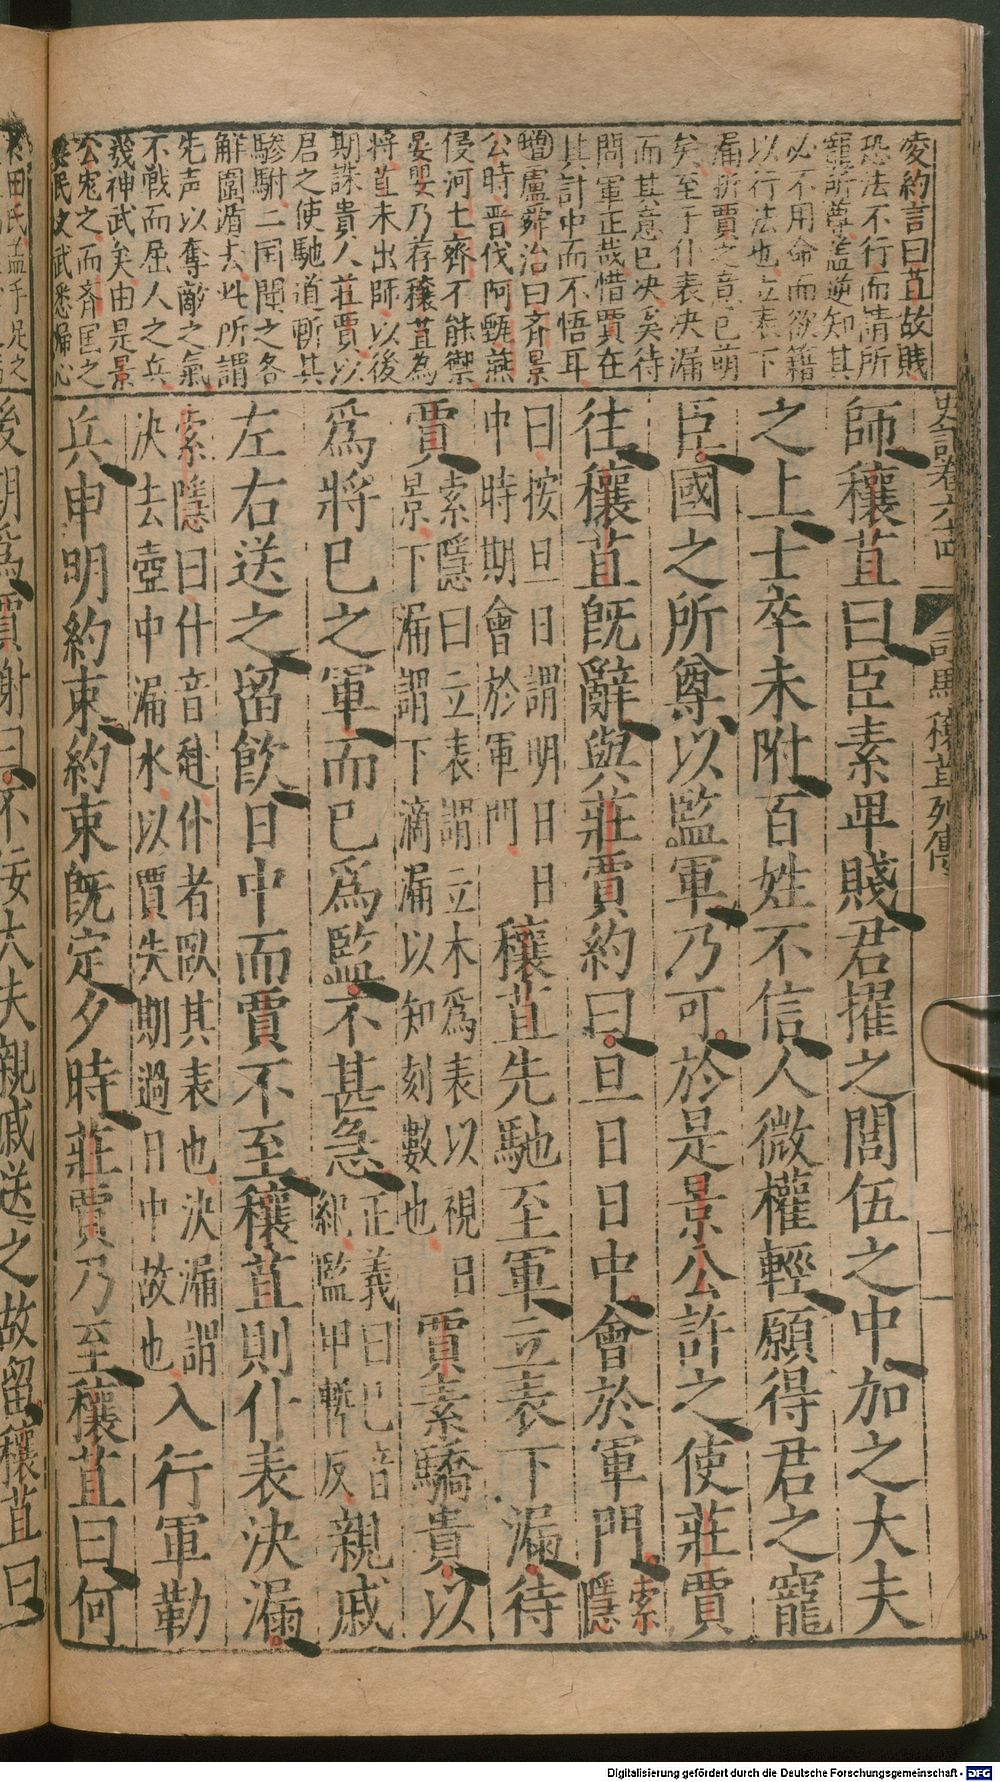 史記卷六十四
司馬穰苴列傳
一
凌約言曰苴故賤
恐法不行而請所
寵所尊蓋逆知其
必不用命而欲藉
以行法也立表下
漏折賈之意已萌
矣至于仆表決漏
而其意已决矣待
問軍正哉惜賈在
其計中而不悟耳
增盧舜治曰齊景
公時晋伐阿甄燕
侵河上齊不能禦
晏嬰乃荐穰苴為
將苴未出師以後
期誅貴人莊賈以
君之使馳道斬其
驂駙二国聞之各
解圍遁去此所謂
先声以奪敵之氣
不戰而屈人之兵
幾神武矣由是景
公寃之而齊国之
民文武悉歸心
師穰苴曰臣素卑賤君擢之閭伍之中加之大夫
之上士卒未附百姓不信人微權輕願得君之寵
臣國之所尊以監軍乃可於是景公許之使莊賈
往穰苴既辭與莊賈約曰旦日日中會於軍門索隱
曰按旦日謂明日日中時期會於軍門穰苴先馳至軍立表下漏待
賈索隱曰立表謂立木為表以視日景下漏謂下滴漏以知刻數也賈素驕貴以
爲將已之軍而已爲監不甚急正義曰已音紀監甲暫反親戚
左右送之留飲日中而賈不至穰苴則仆表決漏
索隱曰仆音赴仆者臥其表也決漏謂決去壺中漏水以賈失期過日中故也入行軍勒
兵申明約束約束既定夕時莊賈乃至穰苴曰何
後期爲賈謝曰不佞大夫親戚送之故留穰苴曰
Digitalisierung gefördert durch die Deutsche Forschungsgemeinschaft - DFG